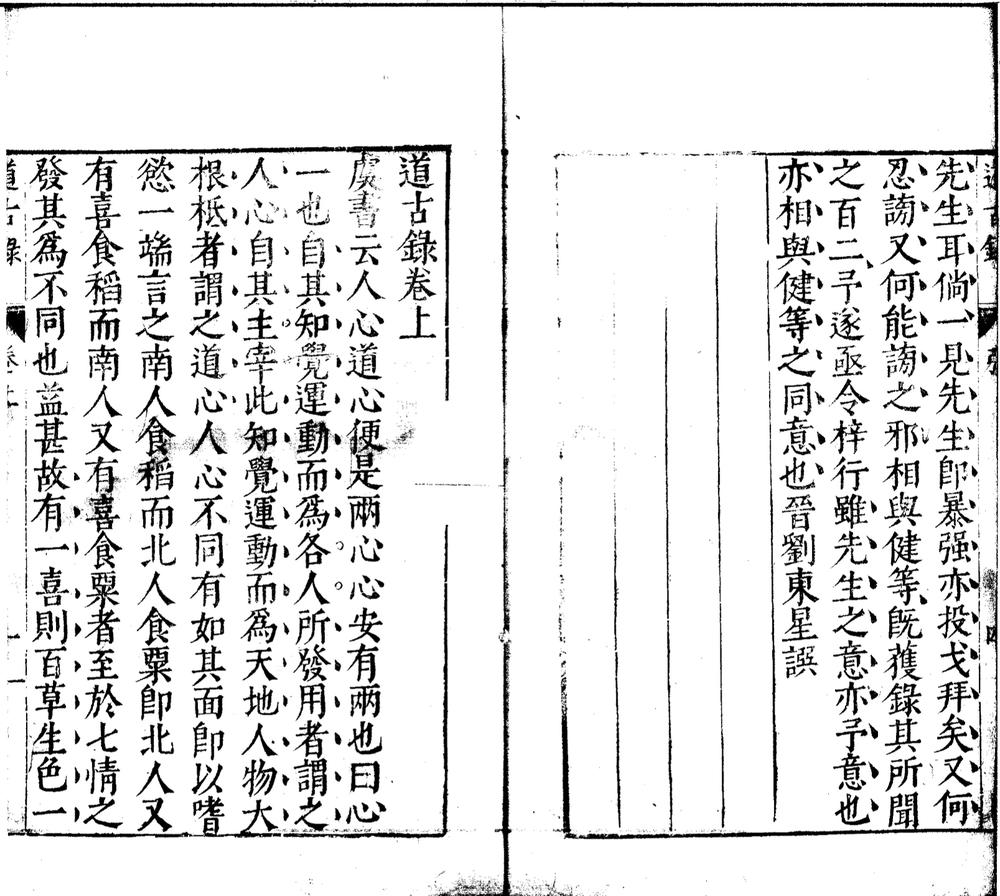 先生耳倘一見先生卽暴强亦投戈拜矣又何
忍謗又何能謗之邪相與健等旣獲錄其所聞
之百二予遂亟令梓行雖先生之意亦予意也
亦相與健等之同意也晉劉東星譔
道古錄卷上
虞書云人心道心便是兩心心安有兩也曰心
一也自其知覺運動而爲各人所發用者謂之
人心自其主宰此知覺運動而爲天地人物大
根柢者謂之道心人心不同有如其面卽以嗜
慾一端言之南人食稻而北人食粟卽北人又
有喜食稻而南人又有喜食粟者至於七情之
發其爲不同也葢甚故有一喜則百草生色一
道古錄
卷上
一